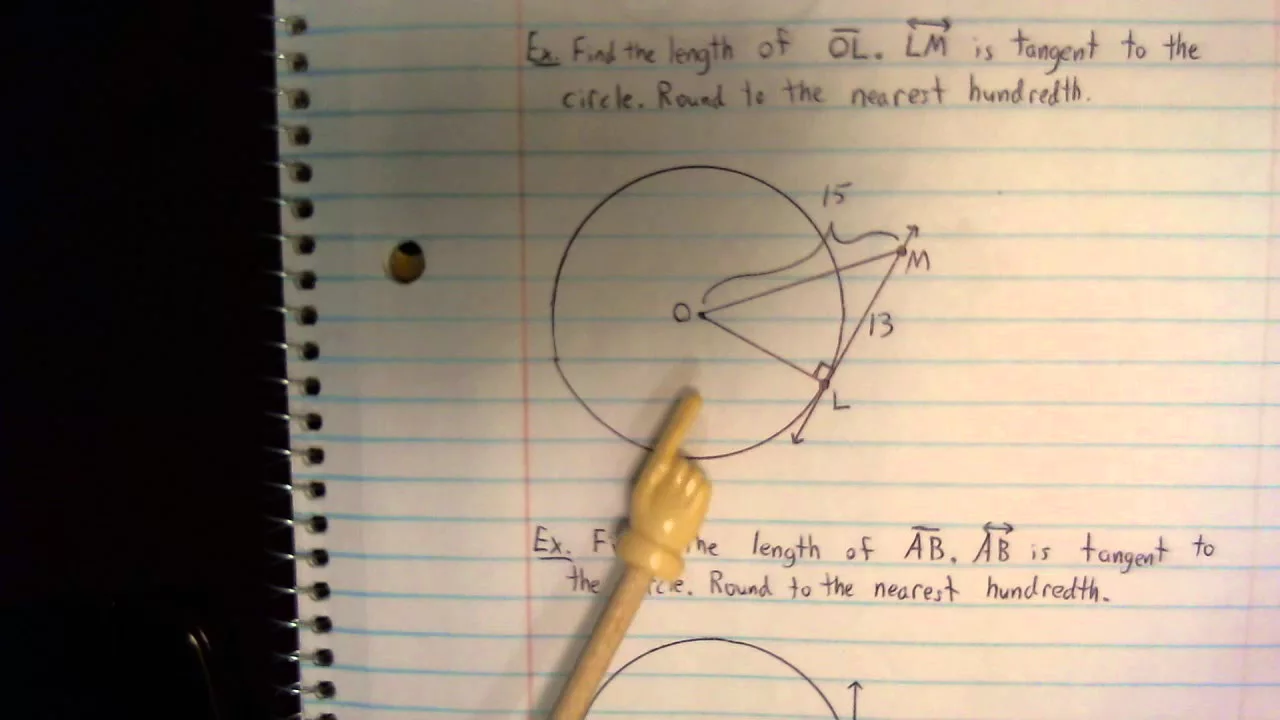 Ex. Find the length of O̅L̅. L͍M͍ is tangent to the
circle. Round to the nearest hundredth.
15
M
O
13
L
Ex. the length of A̅B̅. A͍B͍ is tangent to
the Round to the nearest hundredth.